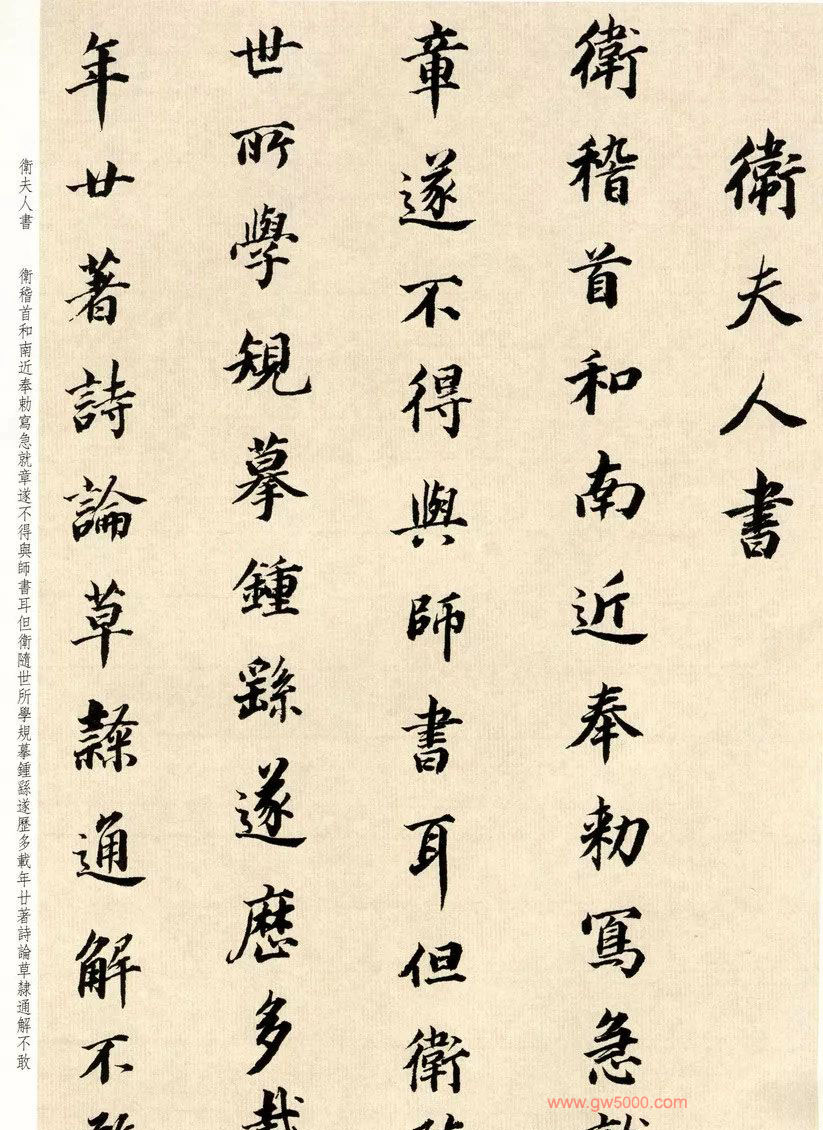 衛夫人書
衛稽首和南近奉勅寫急就
章遂不得與師書耳但衛隨
世所學規摹鍾繇遂歷多載
年廿著詩論草隸通解不敢
衛夫人書 衛稽首和南近奉勅寫急就章遂不得與師書耳但衛隨世所學規摹鍾繇遂歷多載年廿著詩論草隸通解不敢
www.gw5000.com